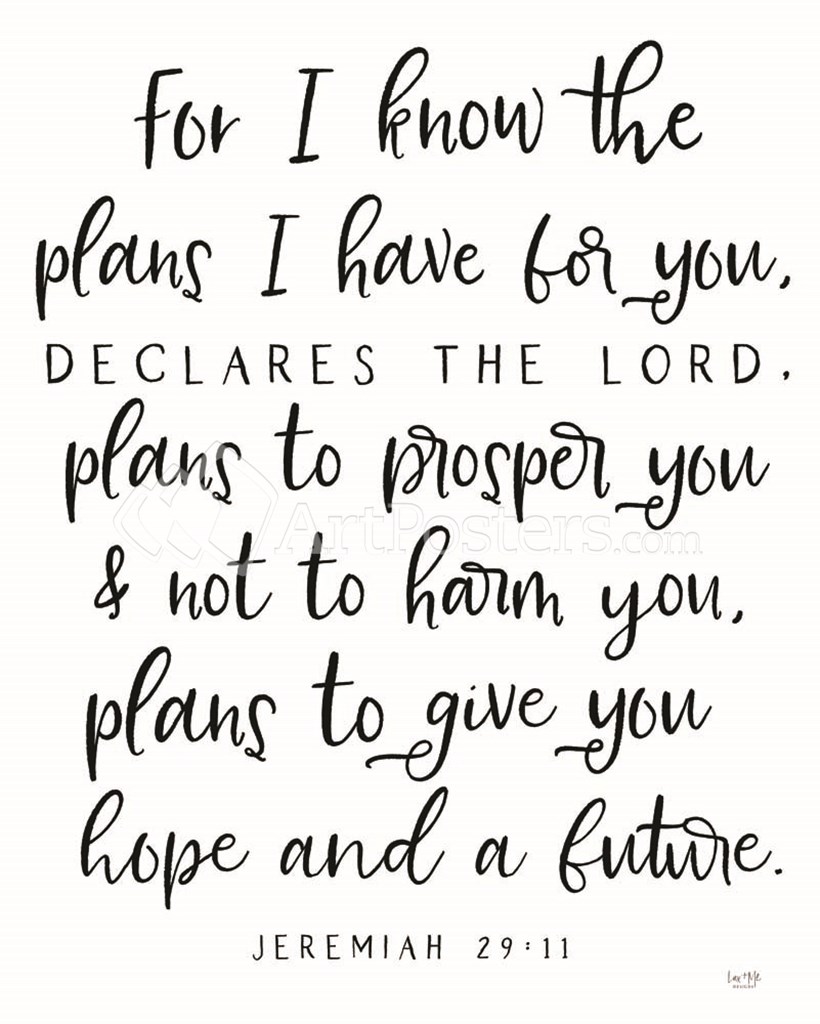 For I know the
plans I have for you,
DECLARES THE LORD,
plans to prosper you
ArtPosters.com
& not to harm you,
plans to give you
hope and a future.
JEREMIAH 29:11
Lux + Me
DESIGNS